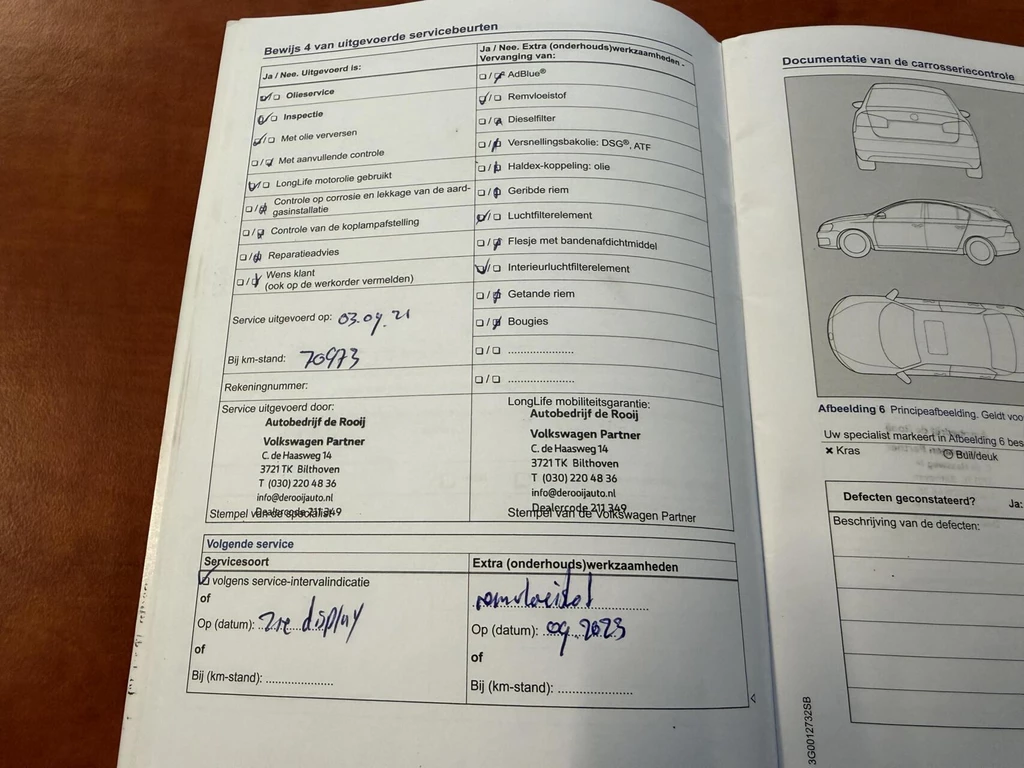 Bewijs 4 van uitgevoerde servicebeurten
Ja / Nee. Uitgevoerd is:
Olieservice
Inspectie
Met olie verversen
Met aanvullende controle
LongLife motorolie gebruikt
Controle op corrosie en lekkage van de aard-
gasinstallatie
Controle van de koplampafstelling
Reparatieadvies
Wens klant
(ook op de werkorder vermelden)
Service uitgevoerd op: 03.09.21
Bij km-stand: 70973
Rekeningnummer:
Service uitgevoerd door:
Autobedrijf de Rooij
Volkswagen Partner
C. de Haasweg 14
3721 TK Bilthoven
T (030) 220 48 36
info@derooijauto.nl
Dealercode 211 349
Stempel van de specialist
Ja / Nee. Extra (onderhouds)werkzaamheden -
Vervanging van:
AdBlue®
Remvloeistof
Dieselfilter
Versnellingsbakolie: DSG®, ATF
Haldex-koppeling: olie
Geribde riem
Luchtfilterelement
Flesje met bandenafdichtmiddel
Interieurluchtfilterelement
Getande riem
Bougies
LongLife mobiliteitsgarantie:
Autobedrijf de Rooij
Volkswagen Partner
C. de Haasweg 14
3721 TK Bilthoven
T (030) 220 48 36
info@derooijauto.nl
Dealercode 211 349
Stempel van de Volkswagen Partner
Volgende service
Servicesoort
volgens service-intervalindicatie
of
Op (datum): zie display
of
Bij (km-stand): ....................
Extra (onderhouds)werkzaamheden
remvloeistof
Op (datum): 09.2023
of
Bij (km-stand): ....................
Documentatie van de carrosseriecontrole
Afbeelding 6 Principeafbeelding. Geldt voo
Uw specialist markeert in Afbeelding 6 bes
Kras
Buil/deuk
Defecten geconstateerd? Ja:
Beschrijving van de defecten:
3G0012732SB